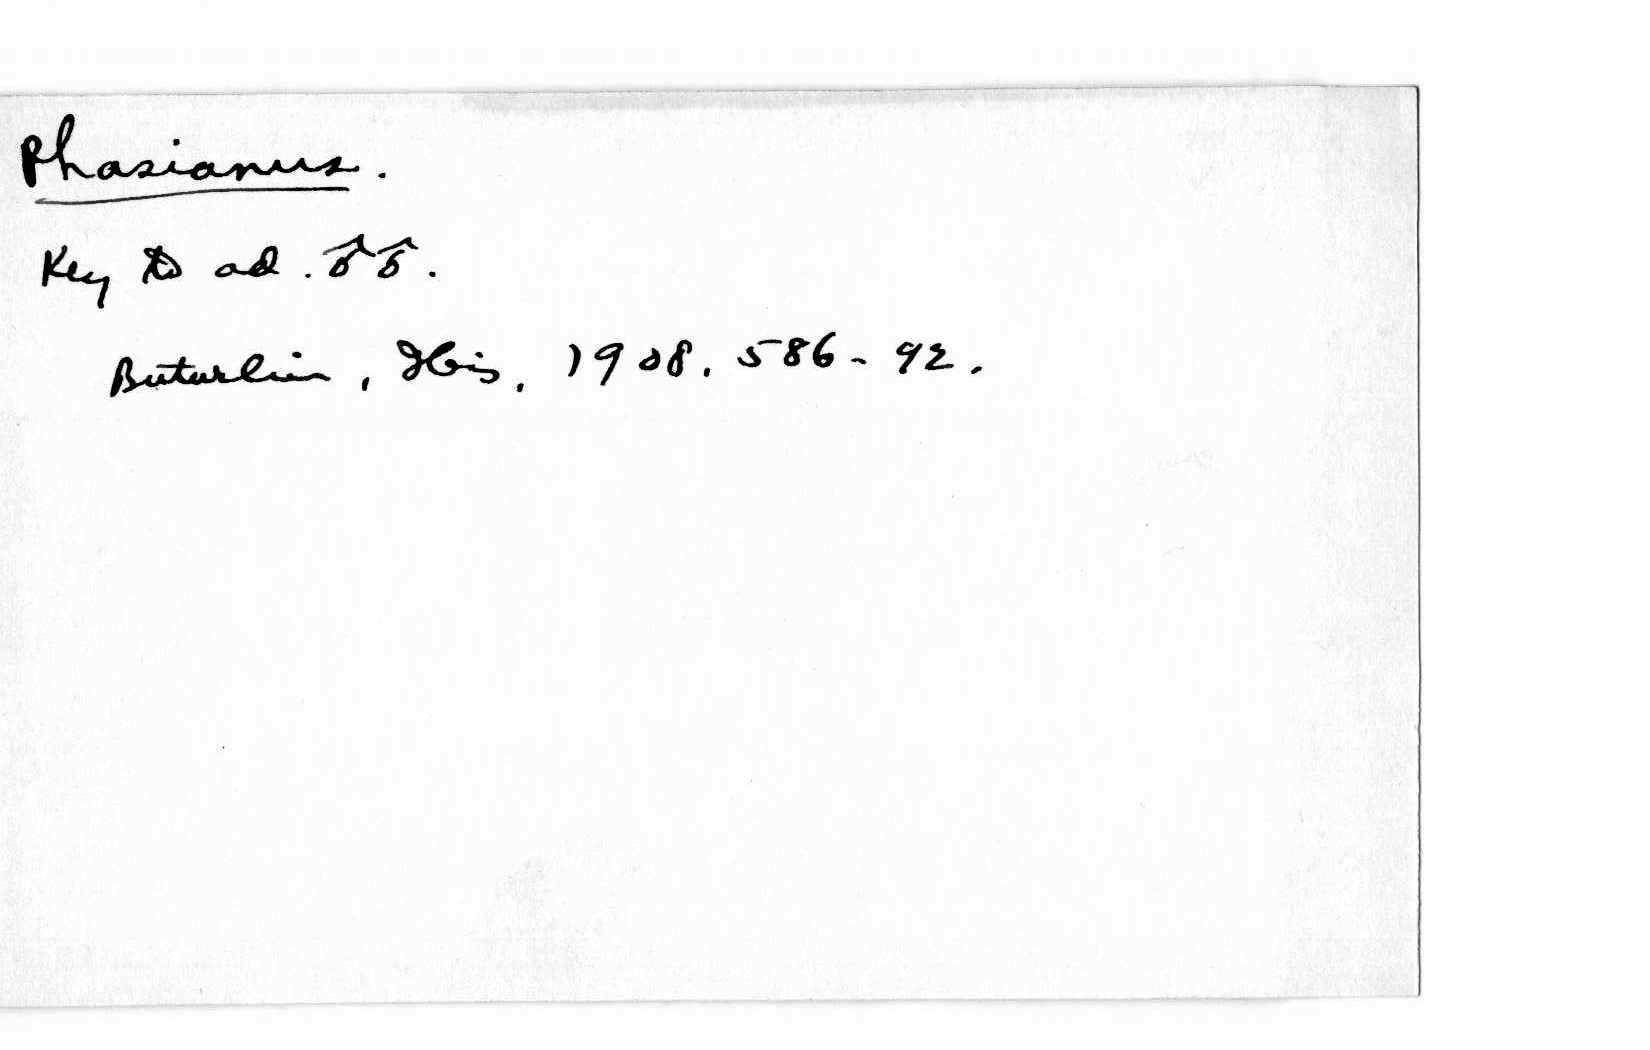 Phasianus.
Key to ad. ♂♂.
Buturlin, Ibis, 1908. 586-92.